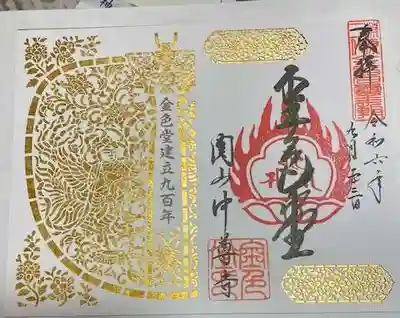 奉拝
令和六年
九月二三日
金色堂
関山中尊寺
金色
金色堂建立九百年